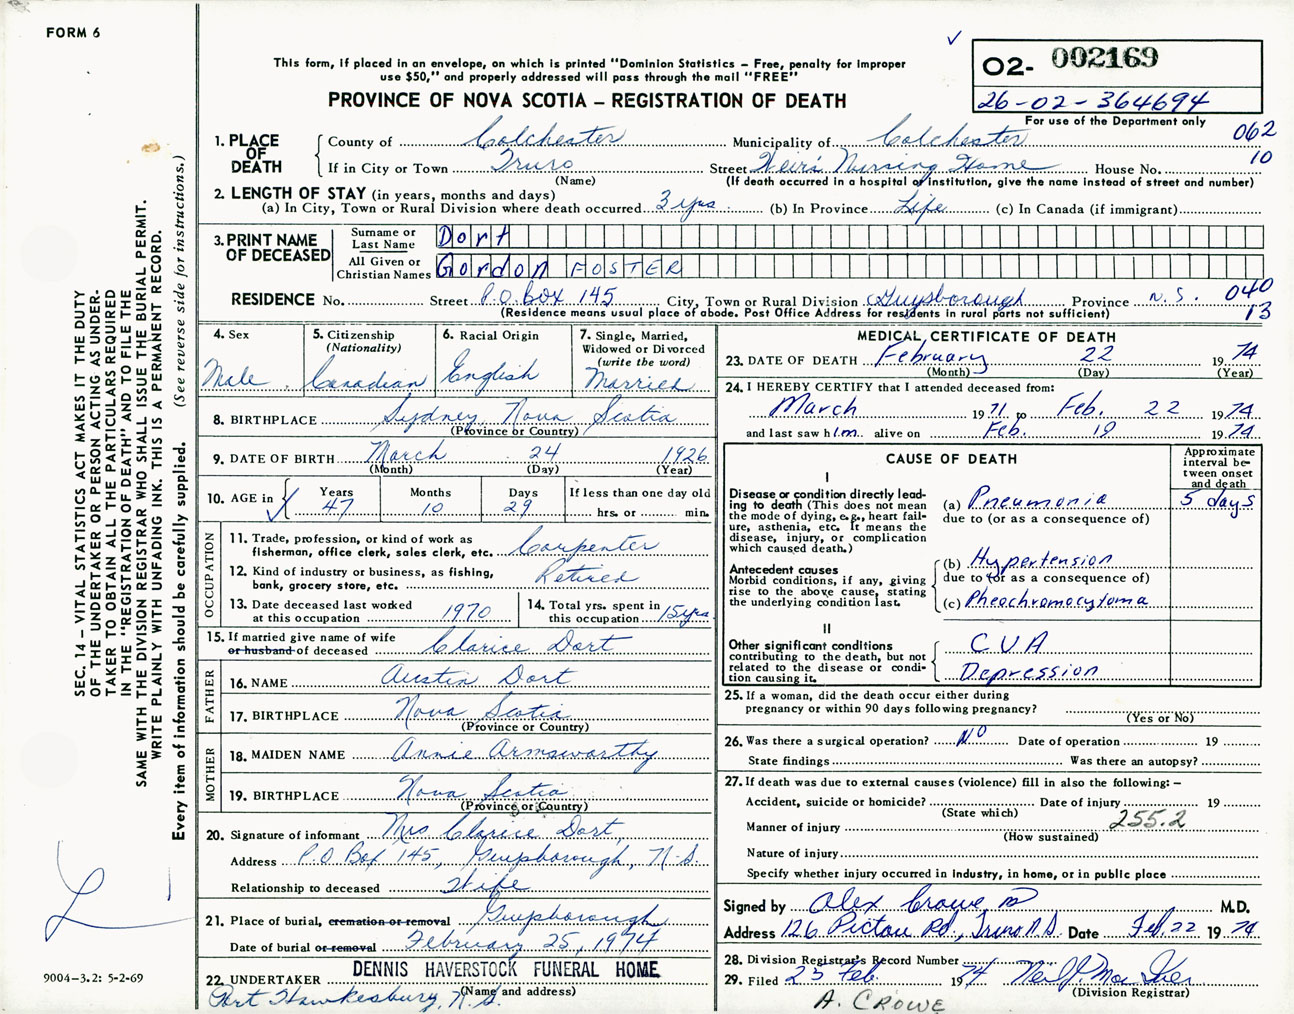 FORM 6
This form, if placed in an envelope, on which is printed "Dominion Statistics – Free, penalty for improper
use $50," and properly addressed will pass through the mail "FREE"
PROVINCE OF NOVA SCOTIA – REGISTRATION OF DEATH
✓
O2- 002169
26-02-364694
For use of the Department only
062
10
1. PLACE OF DEATH
County of Colchester Municipality of Colchester
If in City or Town Truro Street Weir's Nursing Home House No.
(Name) (If death occurred in a hospital or institution, give the name instead of street and number)
2. LENGTH OF STAY (in years, months and days)
(a) In City, Town or Rural Division where death occurred 3 yrs. (b) In Province Life (c) In Canada (if immigrant)
3. PRINT NAME OF DECEASED
Surname or Last Name Dort
All Given or Christian Names Gordon FOSTER
RESIDENCE No. Street P.O. Box 145 City, Town or Rural Division Guysborough Province N.S. 040
13
(Residence means usual place of abode. Post Office Address for residents in rural parts not sufficient)
4. Sex
Male
5. Citizenship
(Nationality)
Canadian
6. Racial Origin
English
7. Single, Married,
Widowed or Divorced
(write the word)
Married
8. BIRTHPLACE Sydney, Nova Scotia
(Province or Country)
9. DATE OF BIRTH March 24 1926
(Month) (Day) (Year)
10. AGE in ✓
Years 47
Months 10
Days 29
If less than one day old
hrs. or min.
OCCUPATION
11. Trade, profession, or kind of work as
fisherman, office clerk, sales clerk, etc. Carpenter
12. Kind of industry or business, as fishing,
bank, grocery store, etc. Retired
13. Date deceased last worked
at this occupation 1970
14. Total yrs. spent in
this occupation 15 yrs
15. If married give name of wife
or husband of deceased Clarice Dort
FATHER
16. NAME Austin Dort
17. BIRTHPLACE Nova Scotia
(Province or Country)
MOTHER
18. MAIDEN NAME Annie Armsworthy
19. BIRTHPLACE Nova Scotia
(Province or Country)
20. Signature of informant Mrs Clarice Dort
Address P.O. Box 145, Guysborough, N.S.
Relationship to deceased Wife
21. Place of burial, cremation or removal Guysborough
Date of burial or removal February 25, 1974
22. UNDERTAKER DENNIS HAVERSTOCK FUNERAL HOME
(Name and address)
Port Hawkesbury, N.S.
MEDICAL CERTIFICATE OF DEATH
23. DATE OF DEATH February 22 1974
(Month) (Day) (Year)
24. I HEREBY CERTIFY that I attended deceased from:
March 1971 to Feb. 22 1974
and last saw him alive on Feb. 19 1974
CAUSE OF DEATH
Approximate
interval be-
tween onset
and death
I
Disease or condition directly lead-
ing to death (This does not mean
the mode of dying, e.g., heart fail-
ure, asthenia, etc. It means the
disease, injury, or complication
which caused death.)
(a) Pneumonia 5 days
due to (or as a consequence of)
Antecedent causes
Morbid conditions, if any, giving
rise to the above cause, stating
the underlying condition last.
(b) Hypertension
due to (or as a consequence of)
(c) Pheochromocytoma
II
Other significant conditions
contributing to the death, but not
related to the disease or condi-
tion causing it.
CVA
Depression
25. If a woman, did the death occur either during
pregnancy or within 90 days following pregnancy?
(Yes or No)
26. Was there a surgical operation? NO Date of operation 19
State findings Was there an autopsy?
27. If death was due to external causes (violence) fill in also the following: –
Accident, suicide or homicide? Date of injury 19
(State which) 255.2
Manner of injury
(How sustained)
Nature of injury
Specify whether injury occurred in industry, in home, or in public place
Signed by Alex Crowe MD M.D.
Address 126 Pictou Rd., Truro N.S. Date Feb. 22 1974
28. Division Registrar's Record Number
29. Filed 25 Feb. 1974
(Division Registrar)
A. CROWE
SEC. 14 – VITAL STATISTICS ACT MAKES IT THE DUTY
OF THE UNDERTAKER OR PERSON ACTING AS UNDER-
TAKER TO OBTAIN ALL THE PARTICULARS REQUIRED
IN THE "REGISTRATION OF DEATH" AND TO FILE THE
SAME WITH THE DIVISION REGISTRAR WHO SHALL ISSUE THE BURIAL PERMIT.
WRITE PLAINLY WITH UNFADING INK. THIS IS A PERMANENT RECORD.
Every item of information should be carefully supplied. (See reverse side for instructions.)
9004–3.2: 5-2-69